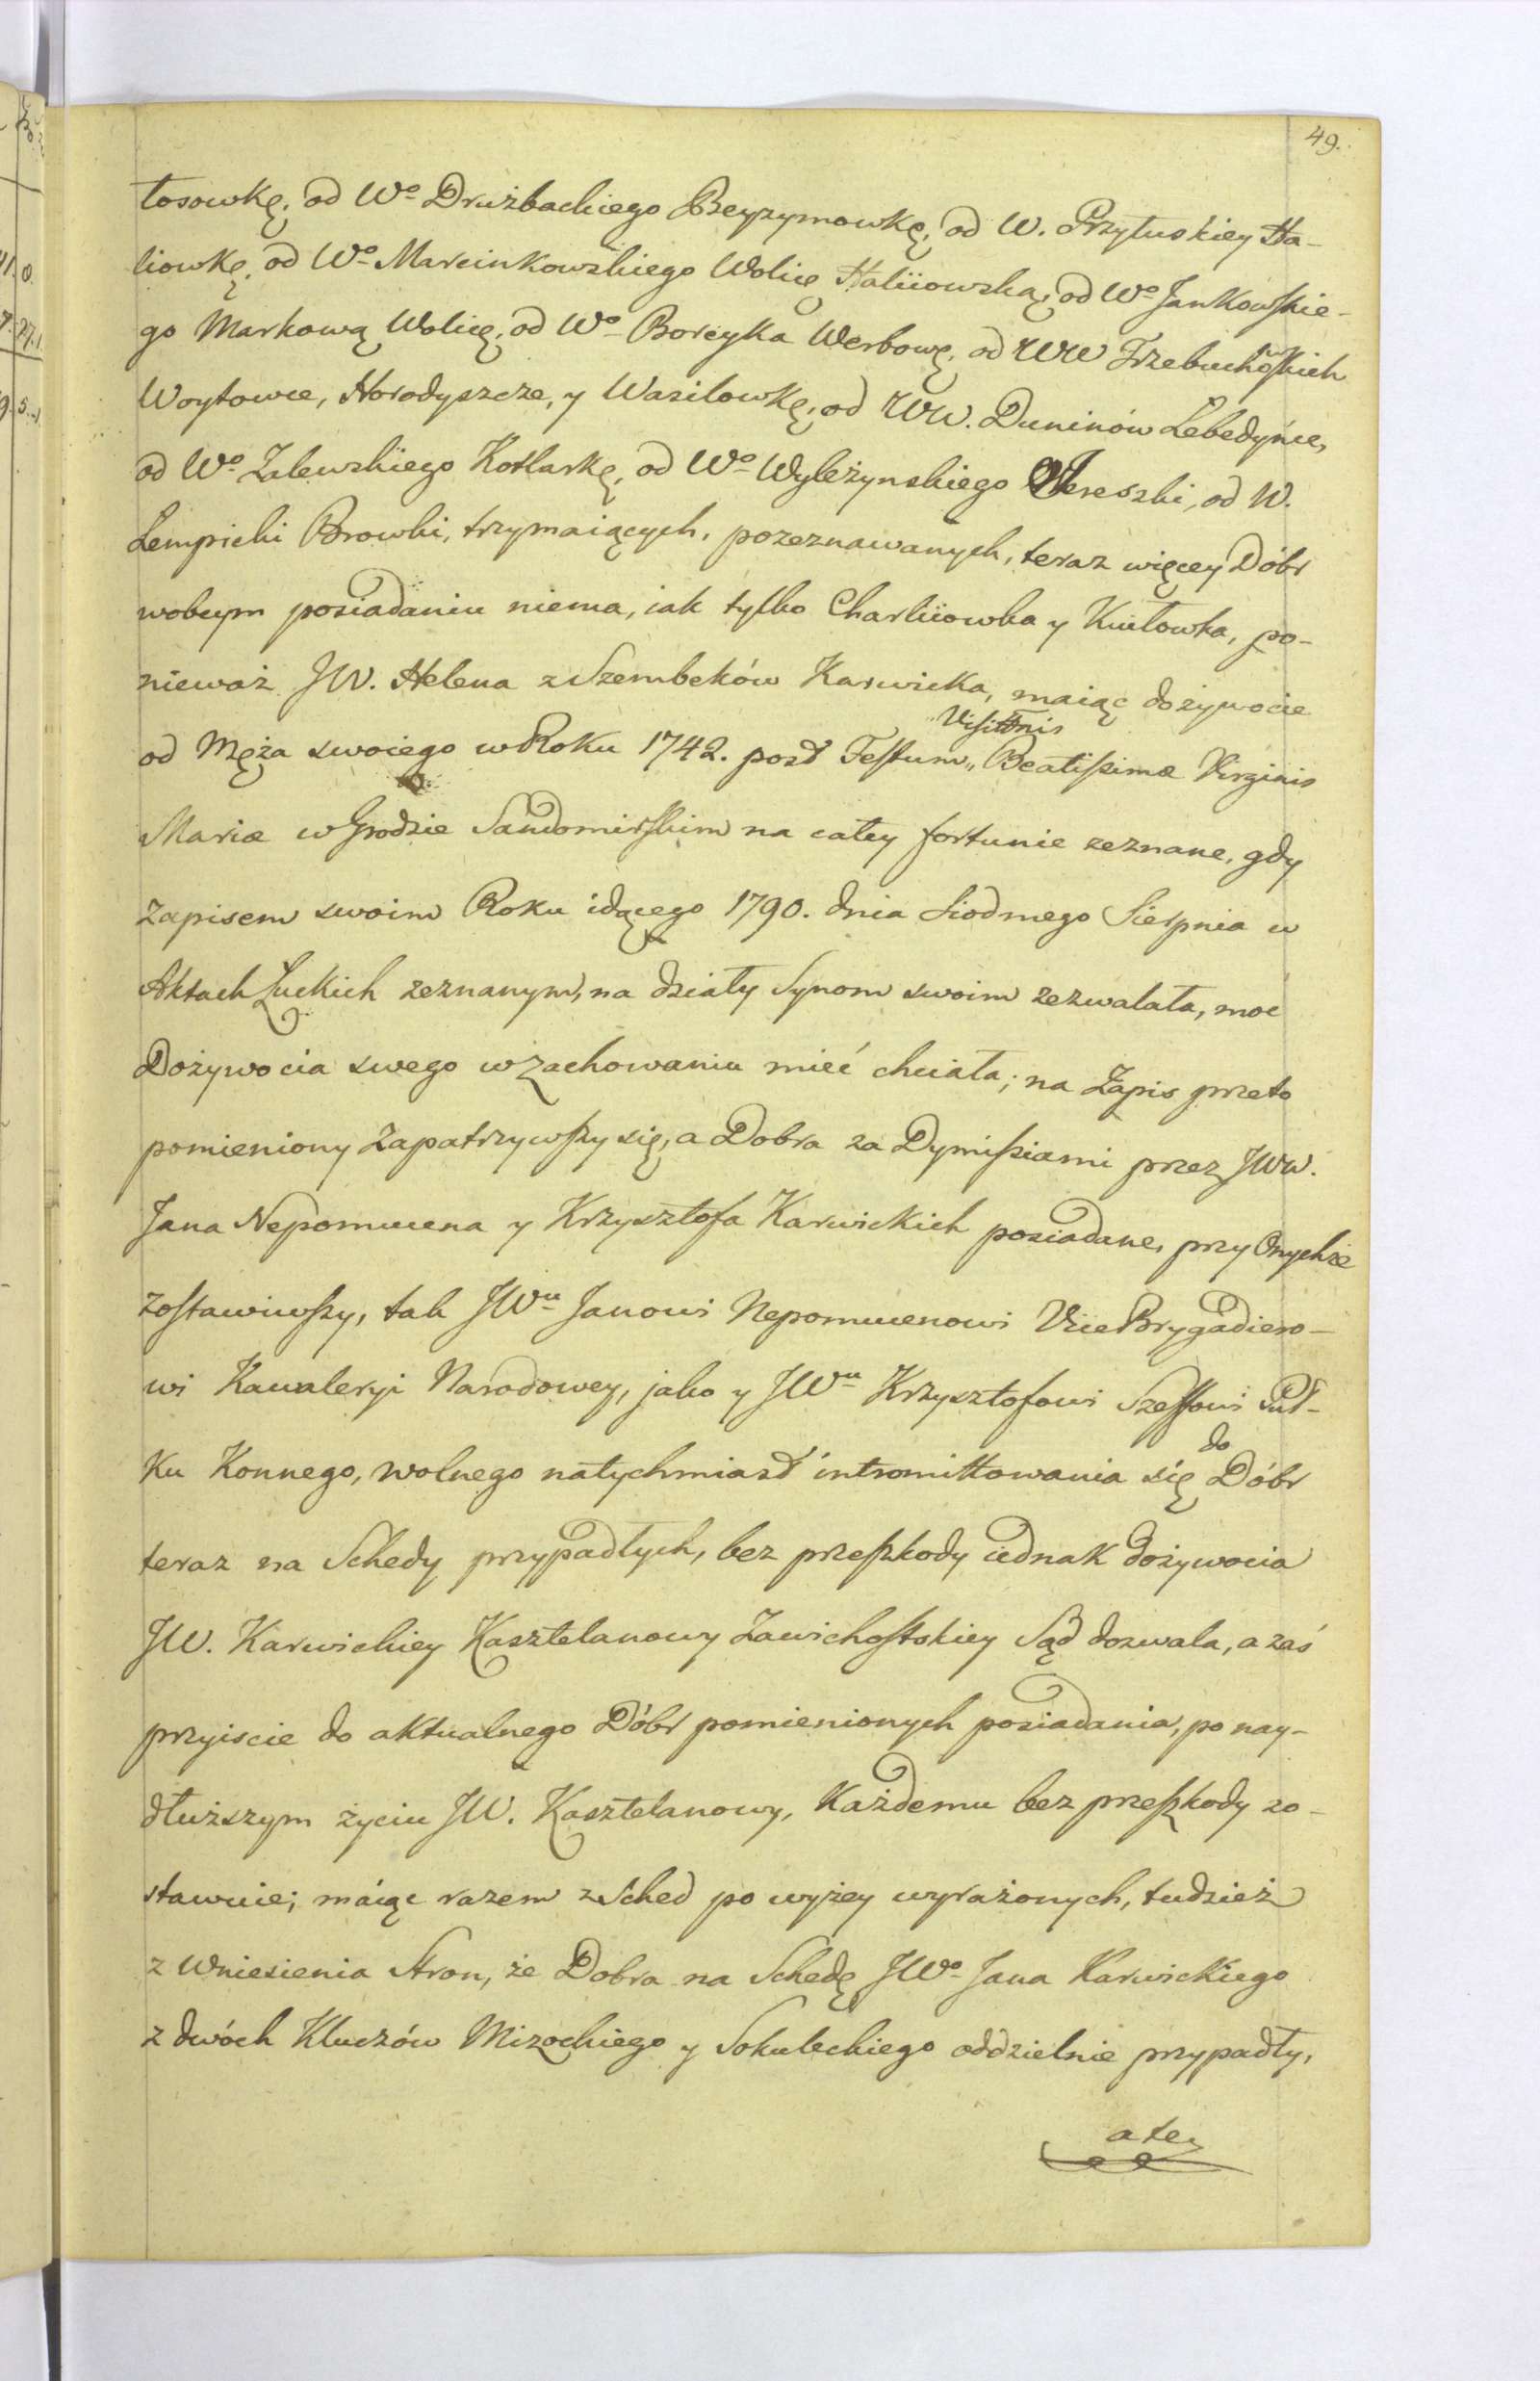 49.
łosowkę, od Wº Drużbackiego Beyzymowkę, od W. Przyłuskiey Ha-
liowkę, od Wº Marcinkowskiego Wolię Haliiowską, od Wº Jankowskie-
go Markową Wolię, od Wº Boreyka Werbowę, od WW Trzebuchowskich
Woytowce, Horodyszcze, y Wasilowkę, od WW. Duninów Lebedyńce,
od Wº Zalewskiego Kotlarkę, od Wº Wyleżynskiego Jereszki, od W.
Lempicki Browki, trzymaiących, pozeznawanych, teraz więcey Dóbr
wobcym posiadaniu niema, iak tylko Charliiowka y Kiiłowka, po-
nieważ JW. Helena z Szembeków Karwicka, maiąc dożywocie
od Męża swoiego w Roku 1742. post Festum „ Visittnis Beatissimæ Virginis
Mariæ w Grodzie Sandomirskim na całey fortunie zeznane, gdy
zapisem swoim Roku idącego 1790. dnia Siodmego Sierpnia w
Aktach Łuckich zeznanym, na działy Synom swoim zezwalała, moc
Dożywocia swego w zachowaniu mieć chciała; na Zapis przeto
pomieniony zapatrzywszy się, a Dobra za Dymissiami przez JWW.
Jana Nepomucena y Krzysztofa Karwickich posiadane, przy Onychże
zostawiwszy, tak JWu Janowi Nepomucenowi ViceBrygadiero-
wi Kawaleryi Narodowey, jako y JWu Krzysztofowi Szeffowi Puł-
ku Konnego, wolnego natychmiast intromittowania się do Dóbr
teraz na Schedy przypadłych, bez przeszkody iednak dożywocia
JW. Karwickiey Kasztelanowy Zawichostskiey Sąd dozwala, a zaś
przyiscie do aktualnego Dóbr pomienionych posiadania, po nay-
dłuższym życiu JW. Kasztelanowy, każdemu bez przeszkody zo-
stawuie; maiąc razem z Sched po wyżey wyrażonych, tudzież
z wniesienia Stron, że Dobra na Schedę JWº Jana Karwickiego
z dwóch Kluczów Mizockiego y Sokuleckiego oddzielnie przypadły,
a tey